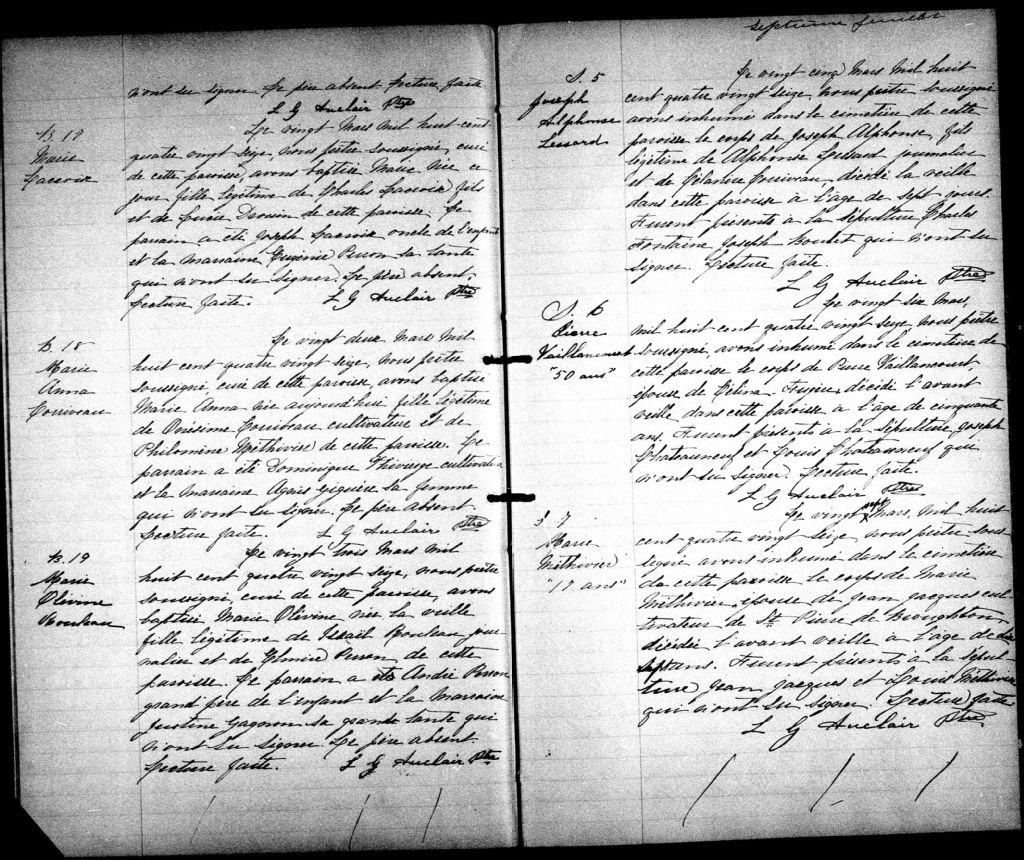 n'ont su signer. Le père absent. Lecture faite
L G Auclair Ptre
B. 17
Marie
Lacroix
Le vingt Mars mil huit cent
quatre vingt seize, nous prêtre soussigné, curé
de cette paroisse, avons baptisé Marie née ce
jour fille légitime de Charles Lacroix fils
et de Lucie Drouin de cette paroisse. Le
parrain a été Joseph Lacroix oncle de l'enfant
et la marraine Eugénie Perron sa tante
qui n'ont su signer. Le père absent.
Lecture faite. L G Auclair Ptre
B. 18
Marie
Anna
Corriveau
Le vingt deux Mars mil
huit cent quatre vingt seize, nous prêtre
soussigné, curé de cette paroisse, avons baptisé
Marie Anna née aujourd'hui fille légitime
de Onésime Corriveau cultivateur et de
Philomine Méthivier de cette paroisse. Le
parrain a été Dominique Thivierge cultivateur
et la marraine Agais Giguère sa femme
qui n'ont su signer. Le père absent.
Lecture faite. L G Auclair Ptre
B. 19
Marie
Olivine
Rouleau
Le vingt trois Mars mil
huit cent quatre vingt seize, nous prêtre
soussigné, curé de cette paroisse, avons
baptisé Marie Olivine née la veille
fille légitime de Israil Rouleau jour-
nalier et de Elmire Perron, de cette
paroisse. Le parrain a été André Perron
grand père de l'enfant et la marraine
Justine Gagnon sa grande tante qui
n'ont su signer. Le père absent.
Lecture faite. L G Auclair Ptre
Septième feuillet
S. 5
Joseph
Alphonse
Lessard
Le vingt cinq Mars mil huit
cent quatre vingt seize, nous prêtre soussigné
avons inhumé dans le cimetière de cette
paroisse le corps de Joseph Alphonse, fils
légitime de Alphonse Lessard journalier
et de Célanire Corriveau, décédé la veille
dans cette paroisse à l'âge de sept jours.
Furent présents à la sépulture Charles
Fontaine Joseph Boulet qui n'ont su
signer. Lecture faite.
L G Auclair Ptre
S. 6
Pierre
Vaillancourt
"50 ans"
Le vingt six Mars,
mil huit cent quatre vingt seize, nous prêtre
soussigné, avons inhumé dans le cimetière de
cette paroisse le corps de Pierre Vaillancourt,
époux de Célina décédé l'avant
veille, dans cette paroisse à l'âge de cinquante
ans. Furent présents à la sépulture Joseph
Chateauneuf et Louis Chateauneuf qui
n'ont su signer. Lecture faite.
L G Auclair Ptre
S 7
Marie
Méthivier
"17 ans"
Le vingt sept Mars, mil huit
cent quatre vingt seize nous prêtre sous
signé avons inhumé dans le cimetière
de cette paroisse le corps de Marie
Méthivier, épouse de Jean Jacques cul-
tivateur de St Pierre de Broughton,
décédée l'avant veille à l'âge de dix
sept ans. Furent présents à la sépul-
ture Jean Jacques et Louis Méthivier
qui n'ont su signer. Lecture faite
L G Auclair Ptre